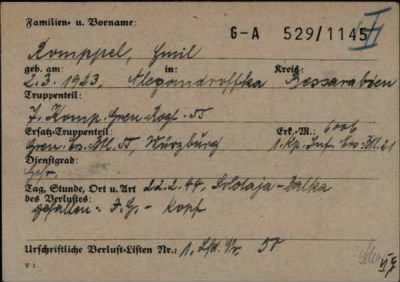 Familien- u. Vorname:
G-A 529/1145
Romppel, Emil
geb. am: in: Kreis:
2.3.1923 Alexandroffka Bessarabien
Truppenteil:
7. Komp. Gren. Regt. 55
Ersatz-Truppenteil: Erk.-M.: 6006
Gren. Ers. Btl. 55, Würzburg 1. Kp. Inf. Ers. Btl. 21
Dienstgrad:
Gefr.
Tag, Stunde, Ort u. Art 22.2.44.
des Verlustes:
gefallen - J.G. - Kopf
Urschriftliche Verlust-Listen Nr.: 1. 50
V 1